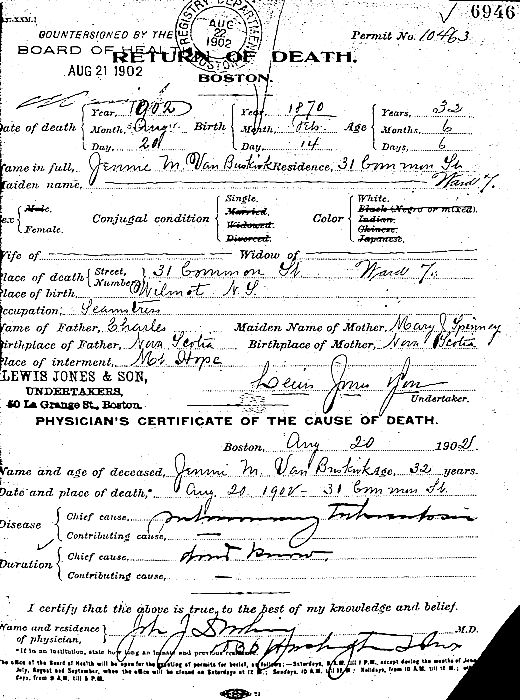 6946
COUNTERSIGNED BY THE
BOARD OF HEALTH
AUG 21 1902
REGISTRY DEPARTMENT
AUG
22
1902
BOSTON
Permit No. 10463
RETURN OF DEATH.
BOSTON.
Date of death { Year, 1902 Month, Aug Day, 20 Birth { Year, 1870 Month, Feb. Day, 14 Age { Years, 32 Months, 6 Days, 6
Name in full, Jennie M. Van Buskirk Residence, 31 Common St
Maiden name, Ward 7.
Sex { Male. Female. Conjugal condition { Single. Married. Widowed. Divorced. Color { White. Black (Negro or mixed). Indian. Chinese. Japanese.
Wife of Widow of
Place of death { Street, Number } 31 Common St Ward 7.
Place of birth, Wilmot N.S.
Occupation, Seamstress
Name of Father, Charles Maiden Name of Mother, Mary J Spinney
Birthplace of Father, Nova Scotia Birthplace of Mother, Nova Scotia
Place of interment, Mt Hope
LEWIS JONES & SON,
UNDERTAKERS,
50 La Grange St., Boston.
Lewis Jones & Son
Undertaker.
PHYSICIAN'S CERTIFICATE OF THE CAUSE OF DEATH.
Boston, Aug 20 1902
Name and age of deceased, Jennie M. Van Buskirk Age, 32 years.
Date and place of death,* Aug. 20 1902 - 31 Common St.
Disease { Chief cause, Pulmonary Tuberculosis
Contributing cause, —
Duration { Chief cause, don't know
Contributing cause, —
I certify that the above is true, to the best of my knowledge and belief.
Name and residence of physician, John J M.D.
Washington
*If in an institution, state how long an inmate and previous residence.
The office of the Board of Health will be open for the granting of permits for burial, as follows:—Saturdays, 9 A.M. till 1 P.M., except during the months of June,
July, August and September, when the office will be closed on Saturdays at 12 M.; Sundays, 10 A.M. till 12 M.; Holidays, from 10 A.M. till 12 M.; other
days, from 9 A.M. till 5 P.M.